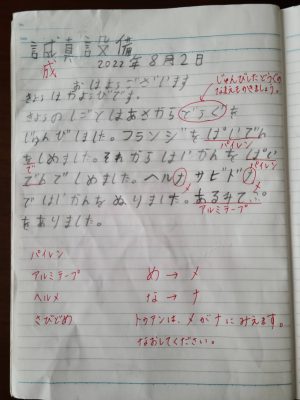 誠真設備
成
2022年8月2日
じゅんびしたどうぐの
なまえもかきましょう。
おはよございます
きょはかよびです。
きょのしごとはあさからどうぐを
じゅんびしました。フランジをぱいでん
をしめました。それからはいかんをぱい
パイレン
でんでしめました。ヘルナサビドナ
メ メ
ではいかんをぬりました。あるみてぷ
アルミテープ
をありました。
パイレン
アルミテープ め→メ
ヘルメ な→ナ
さびどめ トゥアンは、メがナにみえます。
なおしてください。